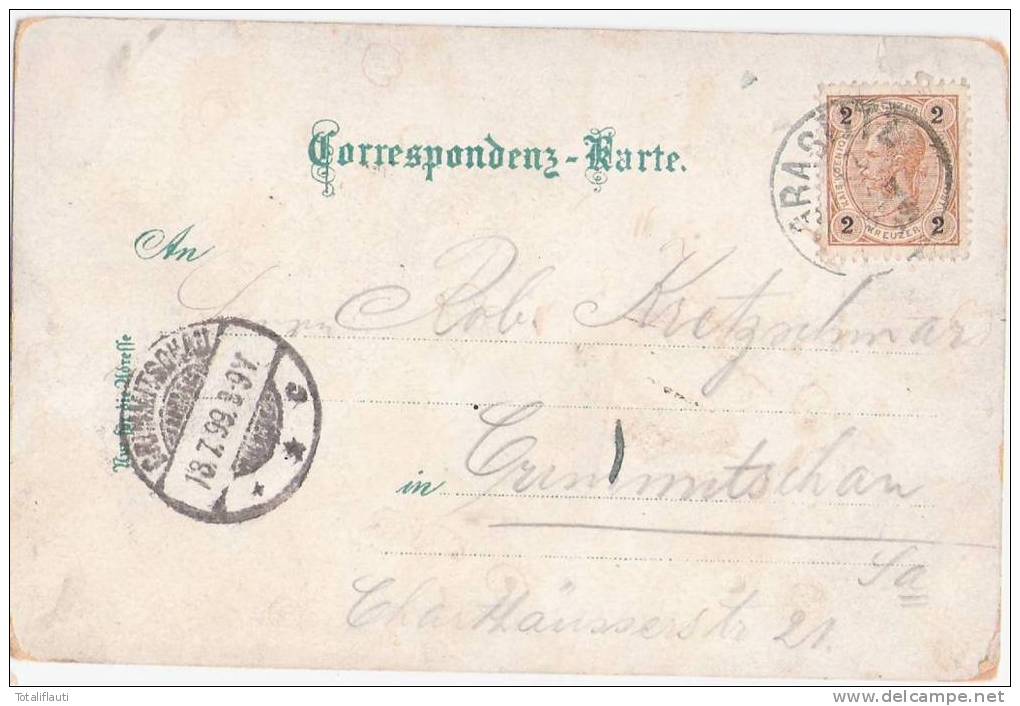 Correspondenz-Karte.
2 KREUZER 2
2 KREUZER 2
An
Herrn Rob. Kretzschmar
Nur für die Adresse
CRIMMITSCHAU
18.7.99. 8-9V.
c
in Crimmitschau
Sa
21.
Totaliflauti
www.delcampe.net